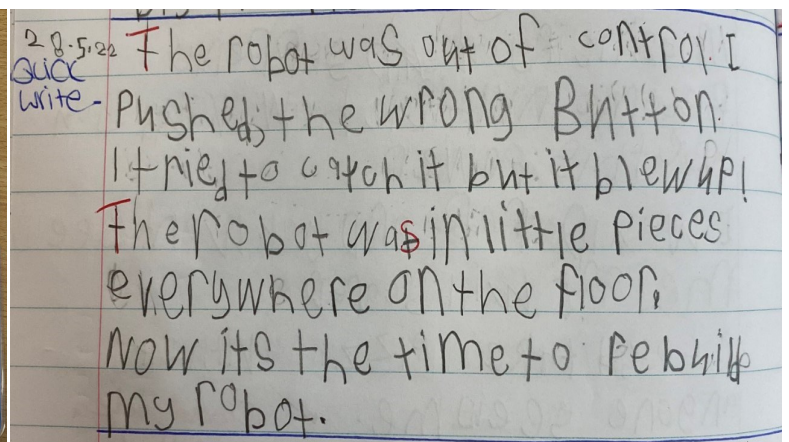 28.5.22 The robot was out of control. I
Quick
write- pushed the wrong Button.
I tried to catch it but it blew up!
The robot was in little pieces
everywhere on the floor.
Now its the time to rebuild
my robot.